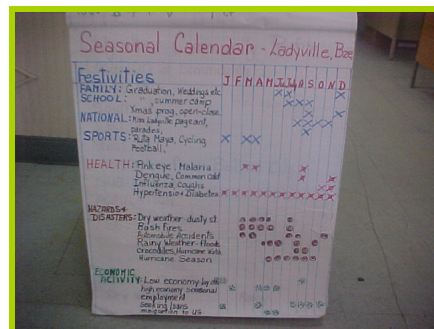 Seasonal Calendar - Ladyville, Bze
Festivities J F M A M J Jul A S O N D
FAMILY: Graduation, Weddings etc.
SCHOOL: " , summer camp
Xmas prog, open-close
NATIONAL: Miss Ladyville pageant,
parades,
SPORTS: Ruta Maya, Cycling
Football,
HEALTH: Pink eye, Malaria
Dengue, Common Cold
Influenza, coughs
Hypertension + Diabetes
HAZARDS +
DISASTERS: Dry weather-dusty st.
Bash fires
Automobile Accidents
Rainy Weather-Floods
Crocodiles, Hurricane
Hurricane Season
ECONOMIC
ACTIVITY: Low economy
high economy seasonal
employment
Seeking loans
migration to US